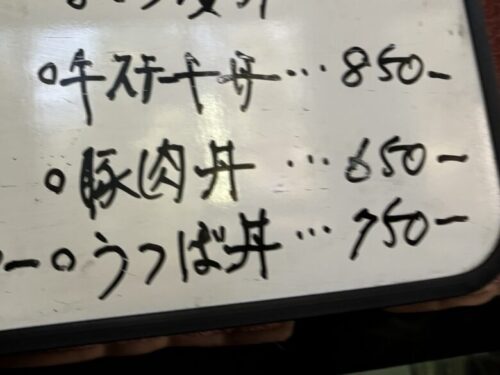 ○牛ステーキ丼…850ー
○豚肉丼…650ー
ー○うつぼ丼…750ー